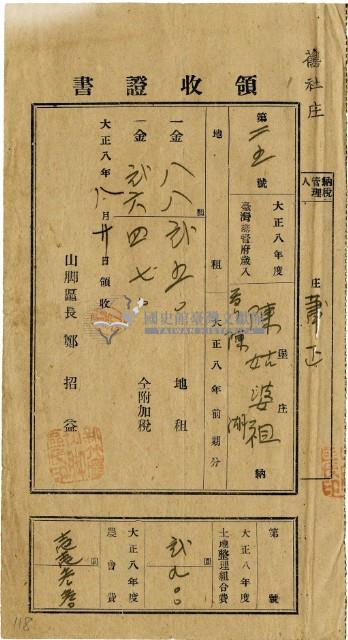 舊社庄
領收證書
納稅管理人
庄
第二五號
大正八年度
臺灣總督府歲入
地租
大正八年前期分
堡
庄
陳姑婆祖
納
一金八八貳五〇
圓
地租
一金貳六四七
仝附加稅
大正八年八月廿日領收
山脚區長鄭招益
國史館臺灣文獻館
TAIWAN HISTORICA
第
號
大正八年度
土地整理組合費
圓
貳九〇〇
大正八年度
農會費
圓
118